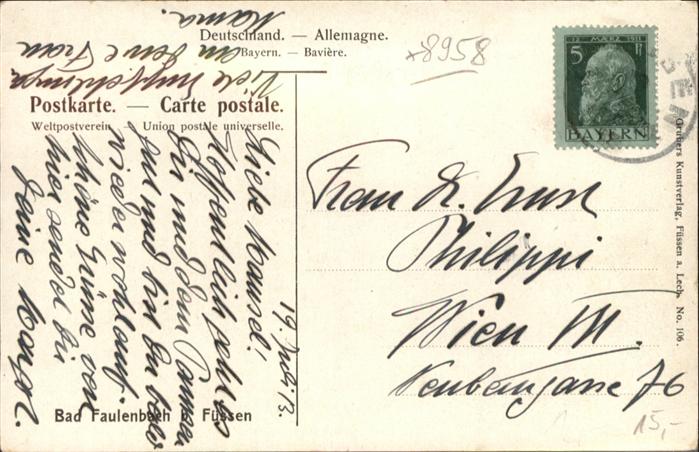 Deutschland. — Allemagne.
Bayern. — Bavière.
Postkarte. — Carte postale.
Weltpostverein. Union postale universelle.
*8958
12 MÄRZ 1911
5 Pf
BAYERN
SSEN
Frau Dr. Ernst
Philippi
Wien III.
76
15,-
19. Juli 13.
Liebe Mausel!
Hoffentlich geht es
Dir und dem
gut und bist Du
wieder wohlauf.
schöne Grüsse von
hier sendet Dir
Deine
Viele
an Deine Frau
Mama.
Bad Faulenbach b. Füssen
Grubers Kunstverlag, Füssen a. Lech. No. 106.